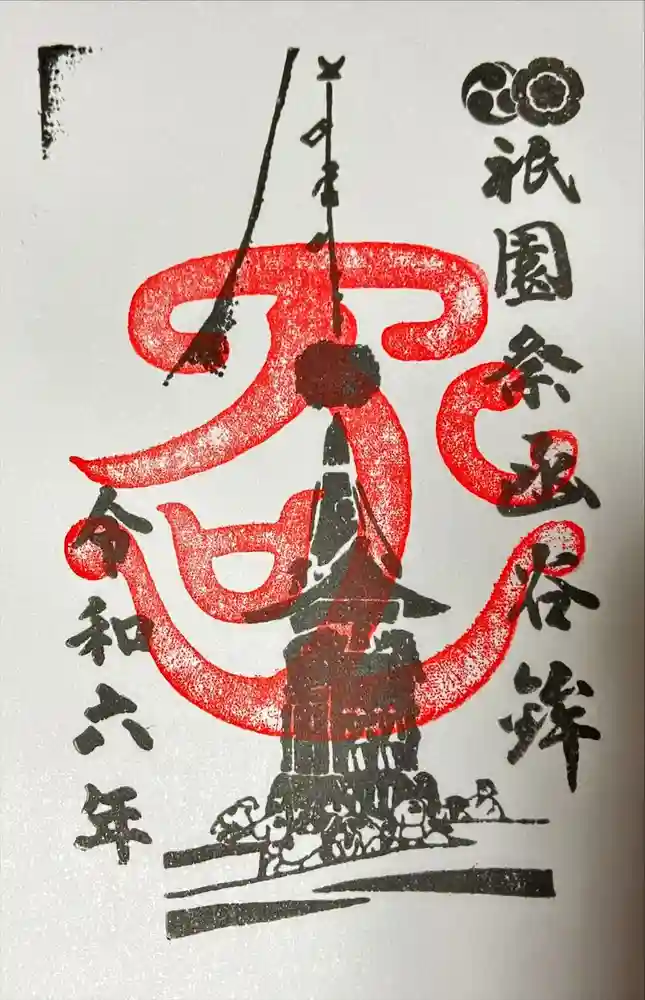 祇園祭函谷鉾
令和六年